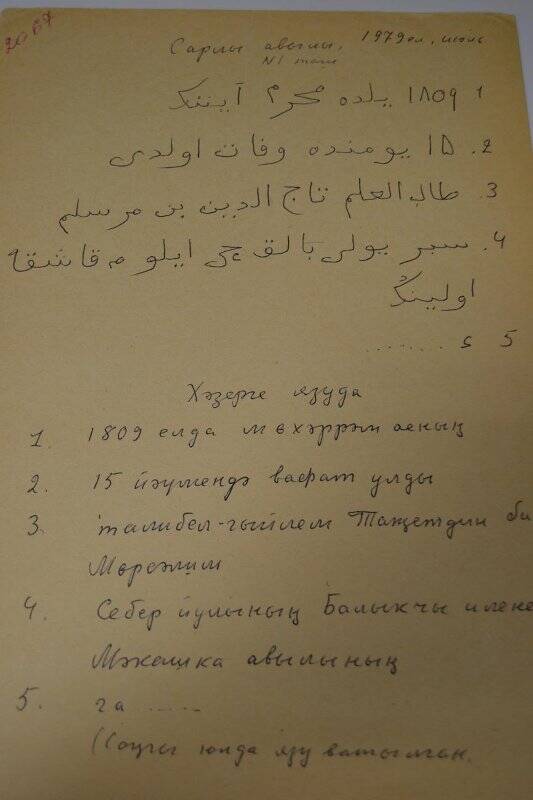 2067
Сарлы авылы, 1979 ел, июль
N1 таш
1 ١٨٠٩ يلده محرم آيننڭ
2. ١٥ يومنده وفات اولدى
3 طالب العلم تاج الدين بن مرسلم
4. سبر يولى بالق چى ايلو مقاشقه
اولينڭ
5 ء ........
Хәзерге язуда
1. 1809 елда мөхәррәм аеның
2. 15 йәүмендә вафат улды
3. талибел-гыйлем Таҗетдин би
Мөрсәлим
4. Себер юлының Балыкчы илене
Мәкәшкә авылының
5. га .....
(Соңгы юлда язу ватылган.